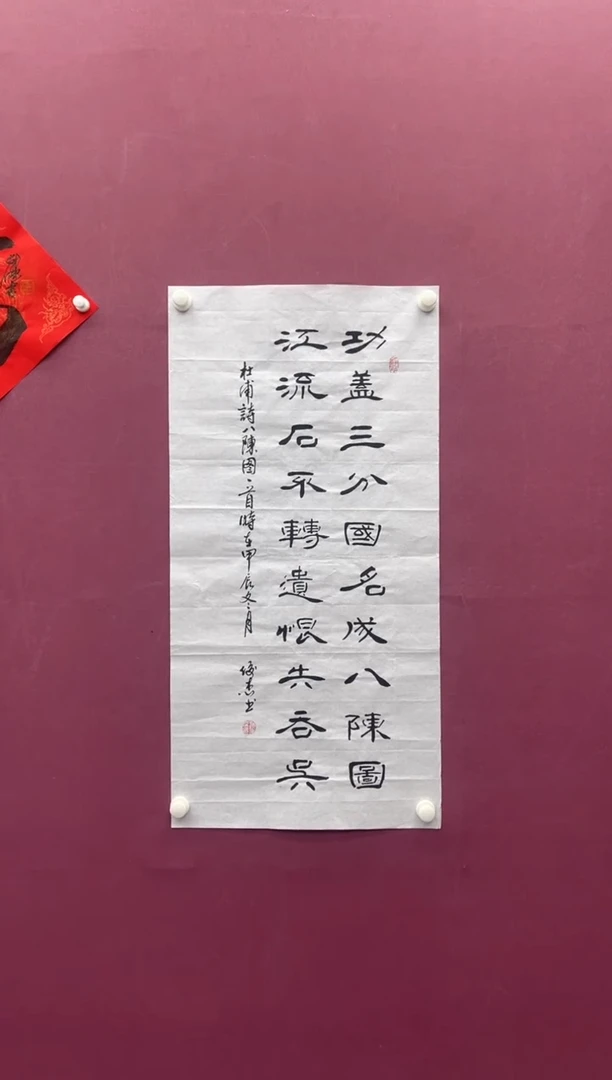 功盖三分國名成八陳圖
江流石不轉遺恨失吞吳
杜甫詩八陳图一首時在甲辰冬月
俊杰书